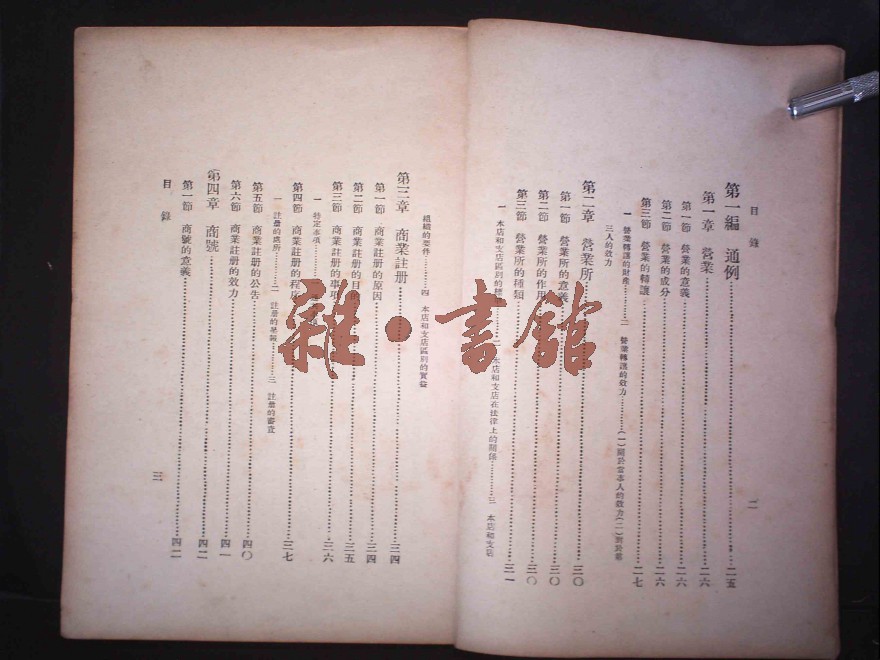 目錄
第一編 通例……二五
第一章 營業……二六
第一節 營業的意義……二六
第二節 營業的成分……二六
第三節 營業的轉讓……二七
一 營業轉讓的財產……二 營業轉讓的效力……(一)關於當事人的效力(二)對於第
三人的效力
第二章 營業所……三〇
第一節 營業所的意義……三〇
第二節 營業所的作用……三〇
第三節 營業所的種類……三一
一 本店和支店區別的標……二 本店和支店在法律上的關係……三 本店和支店
二
組織的要件……四 本店和支店區別的實益
第三章 商業註册……三四
第一節 商業註册的原因……三四
第二節 商業註册的目的……三五
第三節 商業註册的事項……三六
一 特定事項……
第四節 商業註册的程序……三七
一 註册的處所……二 註册的呈報……三 註册的審查
第五節 商業註册的公告……四〇
第六節 商業註册的效力……四一
第四章 商號……四二
第一節 商號的意義……四二
目錄
三
雜·書館